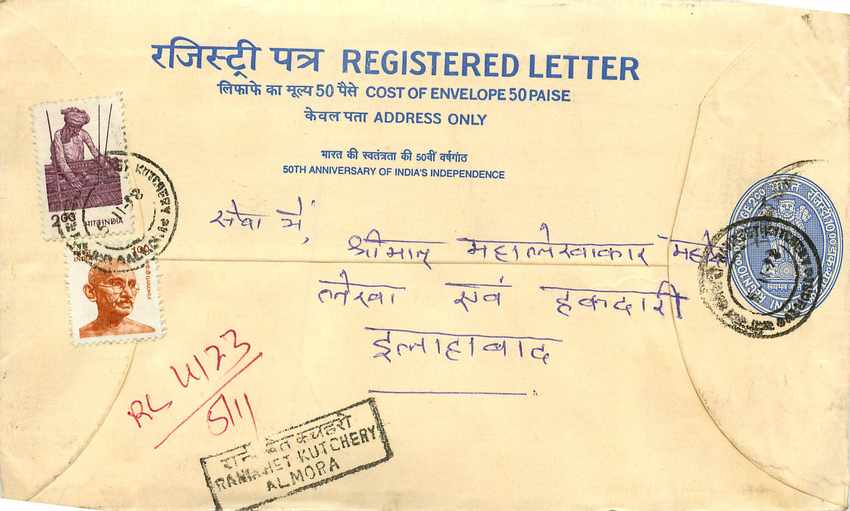 रजिस्ट्री पत्र REGISTERED LETTER
लिफाफे का मूल्य 50 पैसे COST OF ENVELOPE 50 PAISE
केवल पता ADDRESS ONLY
भारत की स्वतंत्रता की 50वीं वर्षगांठ
50TH ANNIVERSARY OF INDIA'S INDEPENDENCE
2.00 भारत INDIA
100
सेवा में,
श्रीमान् महालेखाकार महोदय
लेखा एवं हकदारी
इलाहाबाद
RL 4173
5/11
रानीखेत कचहरी
RANIKHET KUTCHERY
ALMORA